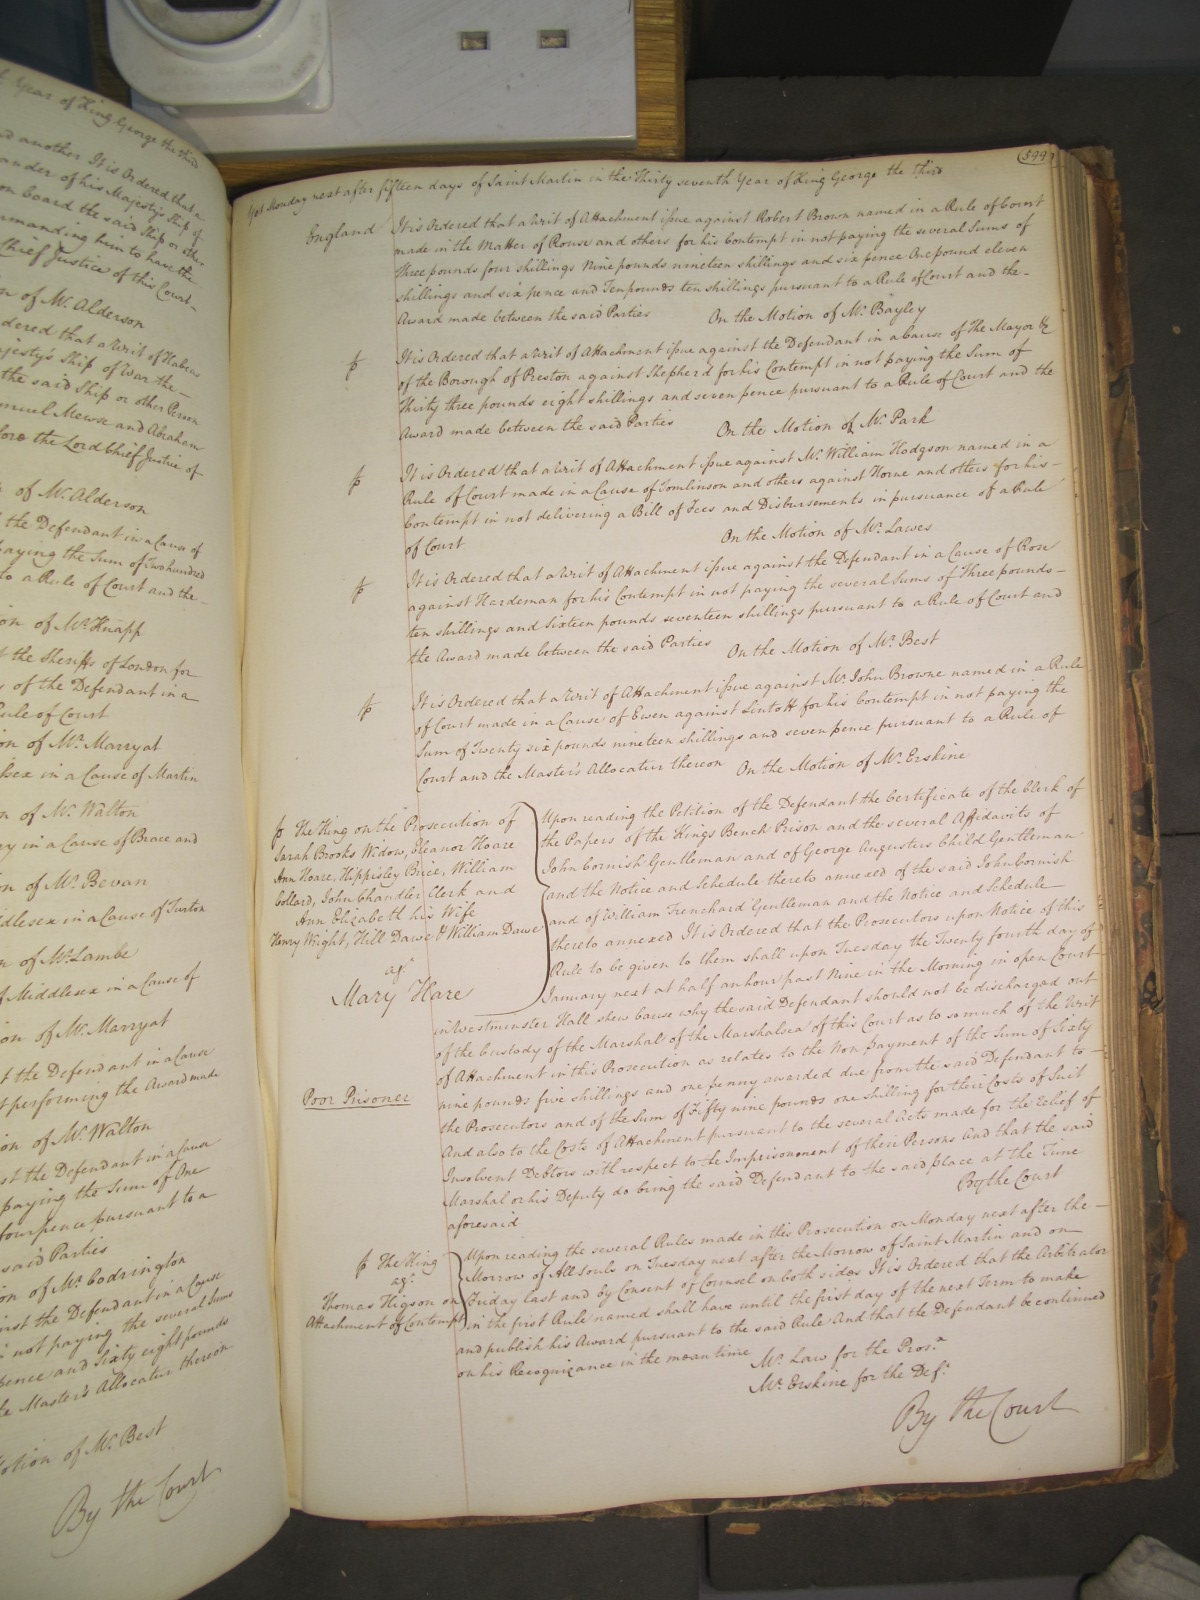 t Year of King George the third
d another It is Ordered that a
ander of his Majesty's Ship of
on board the said Ship or other
mmanding him to have the
Chief Justice of this Court
n of Mr. Alderson
dered that a Writ of Habeas
ajesty's Ship of War the
the said Ship or other Person
muel Mewse and Abraham
fore the Lord Chief Justice of
of Mr. Alderson
the Defendant in a Cause of
paying the Sum of Two hundred
to a Rule of Court and the
on of Mr. Knapp
t the Sheriffs of London for
y of the Defendant in a
Rule of Court
on of Mr. Marryat
lsex in a Cause of Martin
n of Mr. Walton
ry in a Cause of Brace and
on of Mr. Bevan
iddlesex in a Cause of Turton
n of Mr. Lambe
f Middlesex in a Cause of
on of Mr. Marryat
t the Defendant in a Cause
t performing the Award made
ion of Mr. Walton
st the Defendant in a Cause
paying the Sum of One
fourpence pursuant to a
said Parties
on of Mr. Codrington
inst the Defendant in a Cause
not paying the several Sums
pence and Sixty eight pounds
e Master's Allocatur thereon
otion of Mr. Best
By the Court
599
Yet Monday next after fifteen days of Saint Martin in the Thirty seventh Year of King George the Third
England It is Ordered that a Writ of Attachment issue against Robert Brown named in a Rule of Court
made in the Matter of Rouse and others for his Contempt in not paying the several Sums of
Three pounds four shillings Nine pounds nineteen shillings and six pence One pound eleven
shillings and six pence and Ten pounds ten shillings pursuant to a Rule of Court and the
Award made between the said Parties On the Motion of Mr. Bayley
It is Ordered that a Writ of Attachment issue against the Defendant in a Cause of The Mayor &c
of the Borough of Preston against Shepherd for his Contempt in not paying the Sum of
Thirty three pounds eight shillings and seven pence pursuant to a Rule of Court and the
Award made between the said Parties On the Motion of Mr. Park
It is Ordered that a Writ of Attachment issue against Mr. William Hodgson named in a
Rule of Court made in a Cause of Tomlinson and others against Horne and others for his
Contempt in not delivering a Bill of Fees and Disbursements in pursuance of a Rule
of Court On the Motion of Mr. Lawes
It is Ordered that a Writ of Attachment issue against the Defendant in a Cause of Rose
against Hardeman for his Contempt in not paying the several Sums of Three pounds
ten shillings and Sixteen pounds seventeen shillings pursuant to a Rule of Court and
the Award made between the said Parties On the Motion of Mr. Best
It is Ordered that a Writ of Attachment issue against Mr. John Browne named in a Rule
of Court made in a Cause of Ewen against Lintott for his Contempt in not paying the
Sum of Twenty six pounds nineteen shillings and seven pence pursuant to a Rule of
Court and the Master's Allocatur thereon On the Motion of Mr. Erskine
The King on the Prosecution of
Sarah Brooks Widow, Eleanor Hoare
Ann Hoare, Hippisley Brice, William
Gollard, John Chandler Clerk and
Ann Elizabeth his Wife
Henry Wright, Hill Dawe & William Dawe
agt.
Mary Hare
Upon reading the Petition of the Defendant the Certificate of the Clerk of
the Papers of the Kings Bench Prison and the several Affidavits of
John Cornish Gentleman and of George Augustus Child Gentleman
and the Notice and Schedule thereto annexed of the said John Cornish
and of William Trenchard Gentleman and the Notice and Schedule
thereto annexed It is Ordered that the Prosecutors upon Notice of this
Rule to be given to them shall upon Tuesday the Twenty fourth day of
January next at half an hour past Nine in the Morning in open Court
in Westminster Hall shew Cause why the said Defendant should not be discharged out
of the Custody of the Marshal of the Marshalsea of this Court as to so much of the Writ
of Attachment in this Prosecution as relates to the Non payment of the Sum of Sixty
Poor Prisoner
nine pounds five shillings and one penny awarded due from the said Defendant to
the Prosecutors and of the Sum of Fifty nine pounds one shilling for their Costs of Suit
And also to the Costs of Attachment pursuant to the several Acts made for the Relief of
Insolvent Debtors with respect to the Imprisonment of their Persons And that the said
Marshal or his Deputy do bring the said Defendant to the said place at the Time
aforesaid By the Court
The King
agt.
Thomas Higson on
Attachment of Contempt
Upon reading the several Rules made in this Prosecution on Monday next after the
Morrow of All Souls on Tuesday next after the Morrow of Saint Martin and on
Friday last and by Consent of Counsel on both sides It is Ordered that the Arbitrator
in the first Rule named shall have until the first day of the next Term to make
and publish his Award pursuant to the said Rule And that the Defendant be continued
on his Recognizance in the mean time Mr. Law for the Pros.r
Mr. Erskine for the Def.t
By the Court